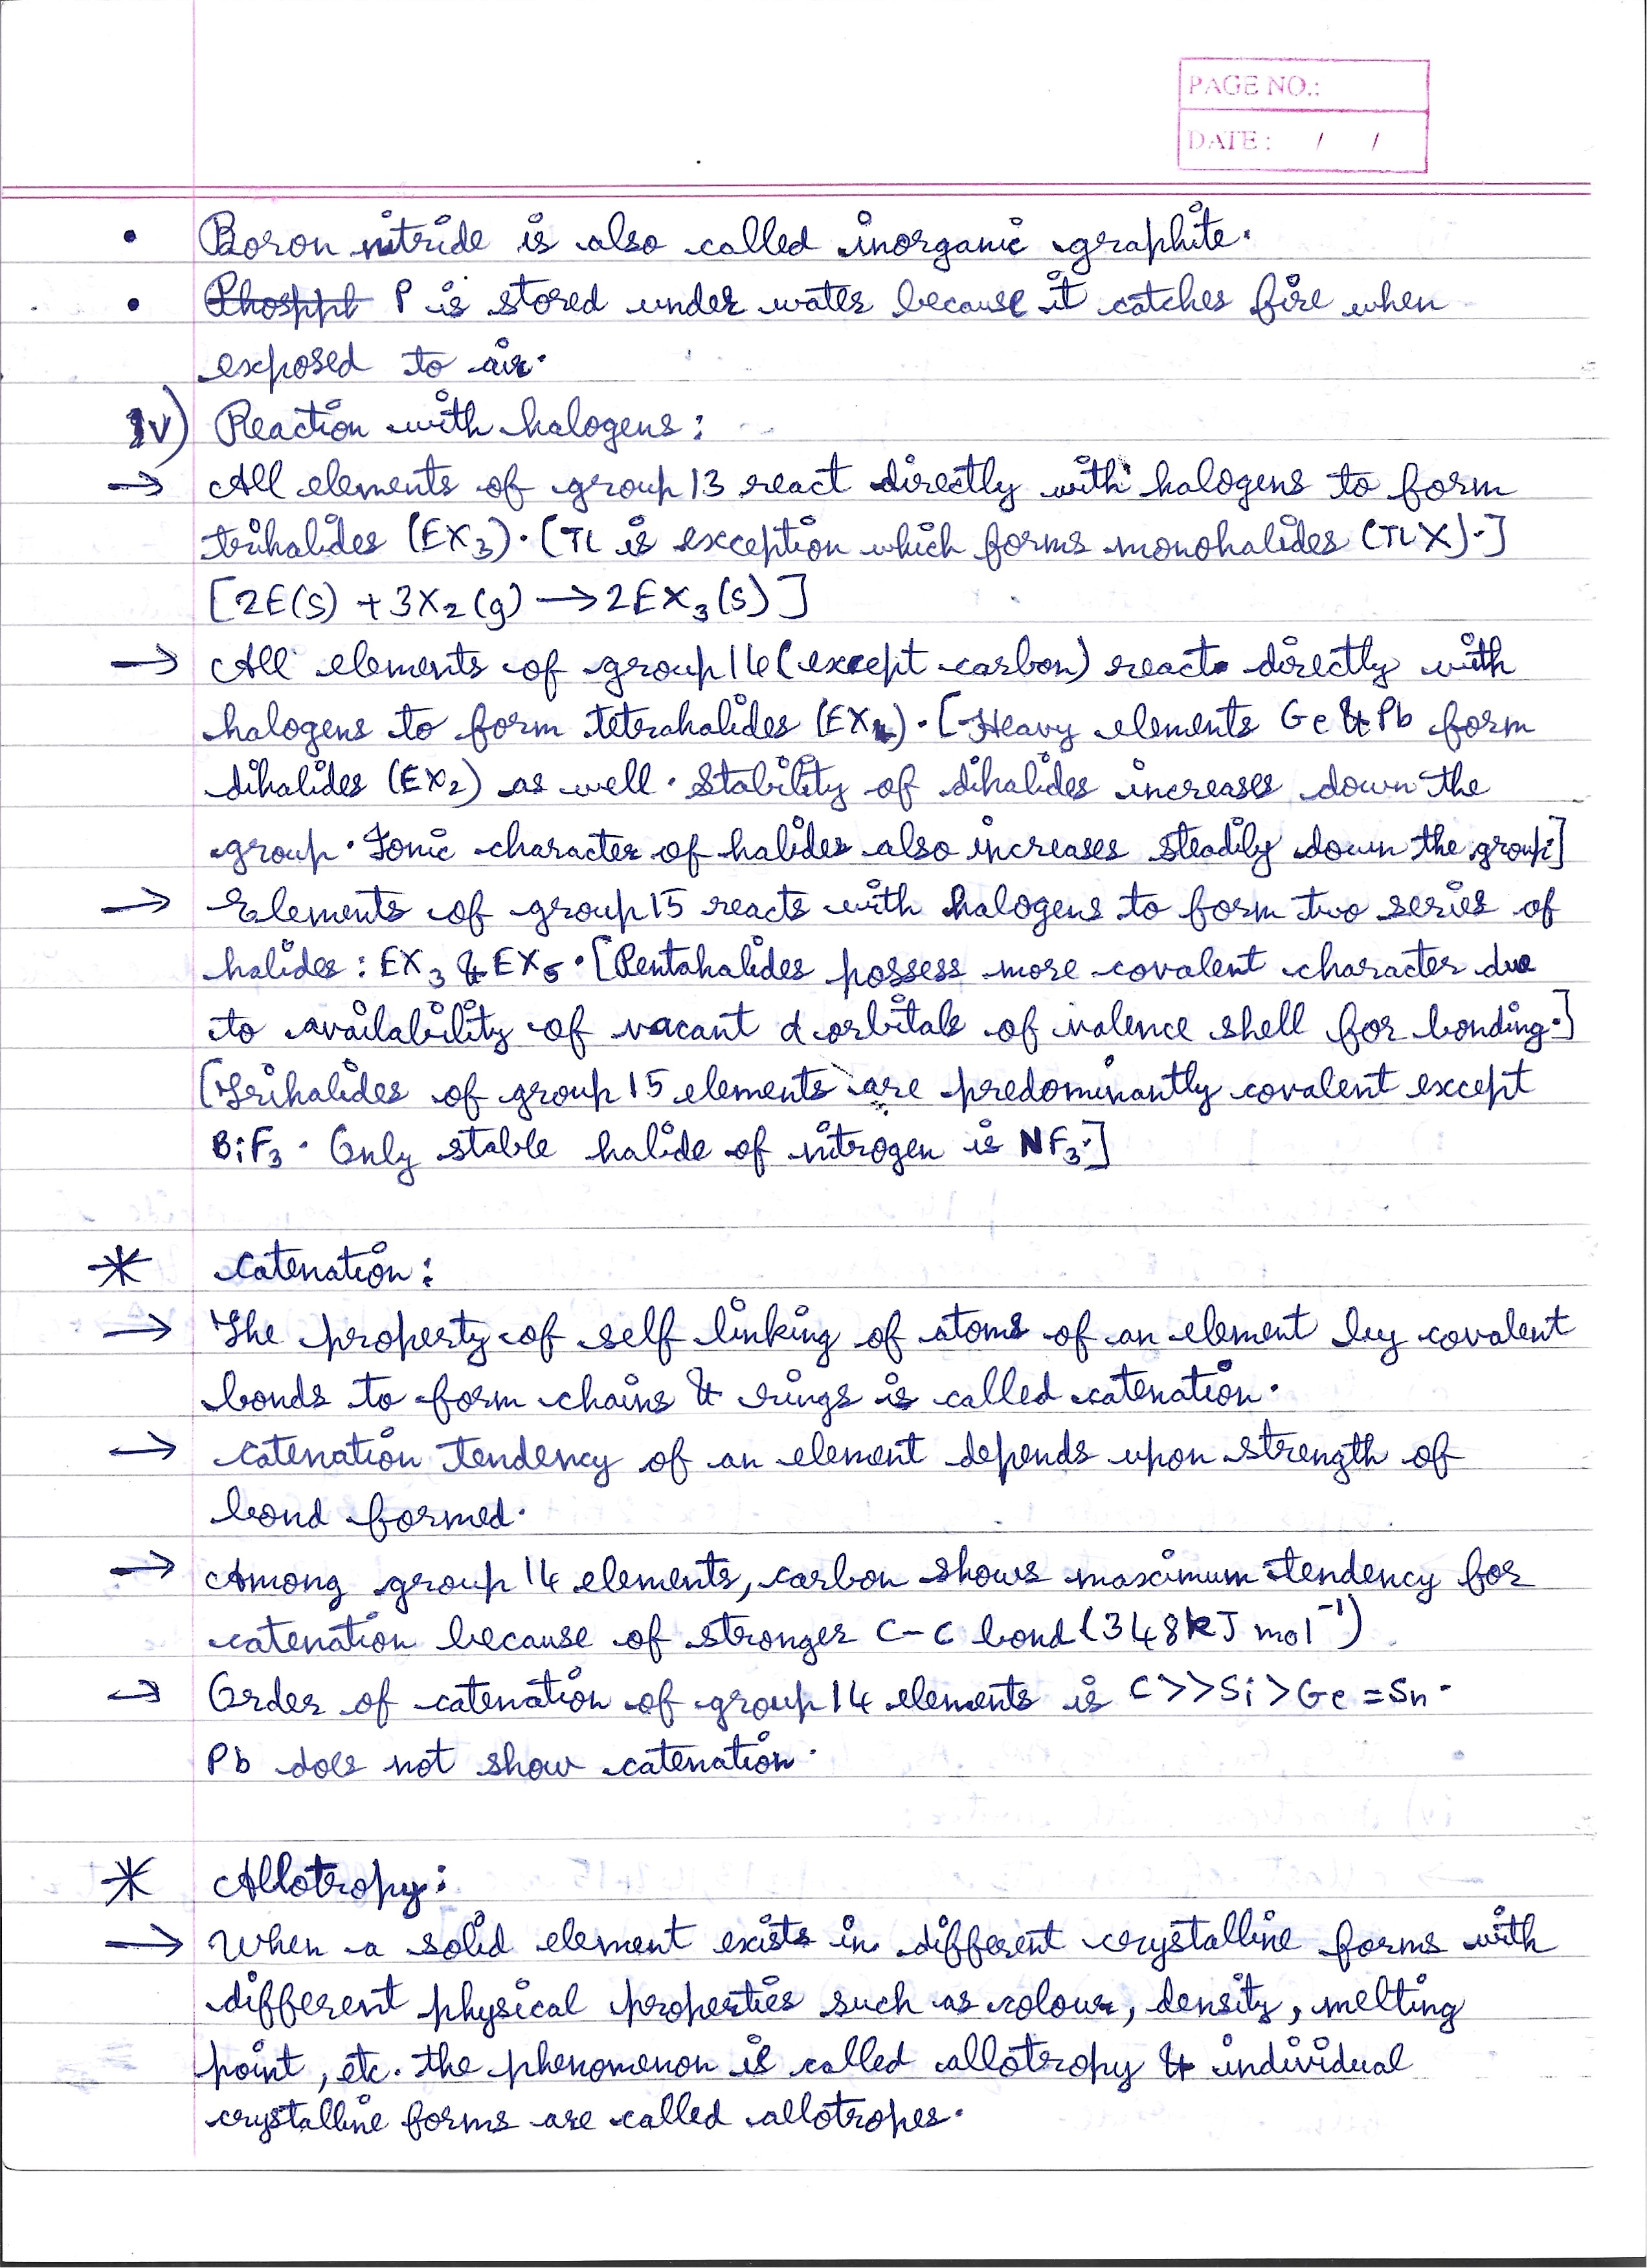 PAGE NO.:
DATE: / /
• Boron nitride is also called inorganic graphite.
• P is stored under water because it catches fire when
exposed to air.
iv) Reaction with halogens:
→ All elements of group 13 react directly with halogens to form
trihalides (EX₃). [Tl is exception which forms monohalides (TlX).]
[2E(s) + 3X₂(g) → 2EX₃(s)]
→ All elements of group 14 (except carbon) react directly with
halogens to form tetrahalides (EX₄). [Heavy elements Ge & Pb form
dihalides (EX₂) as well. Stability of dihalides increases down the
group. Ionic character of halides also increases steadily down the group.]
→ Elements of group 15 reacts with halogens to form two series of
halides: EX₃ & EX₅. [Pentahalides possess more covalent character due
to availability of vacant d orbitals of valence shell for bonding.]
[Trihalides of group 15 elements are predominantly covalent except
BiF₃. Only stable halide of nitrogen is NF₃.]
* Catenation:
→ The property of self linking of atoms of an element by covalent
bonds to form chains & rings is called catenation.
→ Catenation tendency of an element depends upon strength of
bond formed.
→ Among group 14 elements, carbon shows maximum tendency for
catenation because of stronger C-C bond (348kJ mol⁻¹)
→ Order of catenation of group 14 elements is C>>Si>Ge=Sn.
Pb does not show catenation.
* Allotropy:
→ When a solid element exists in different crystalline forms with
different physical properties such as colour, density, melting
point, etc. the phenomenon is called allotropy & individual
crystalline forms are called allotropes.